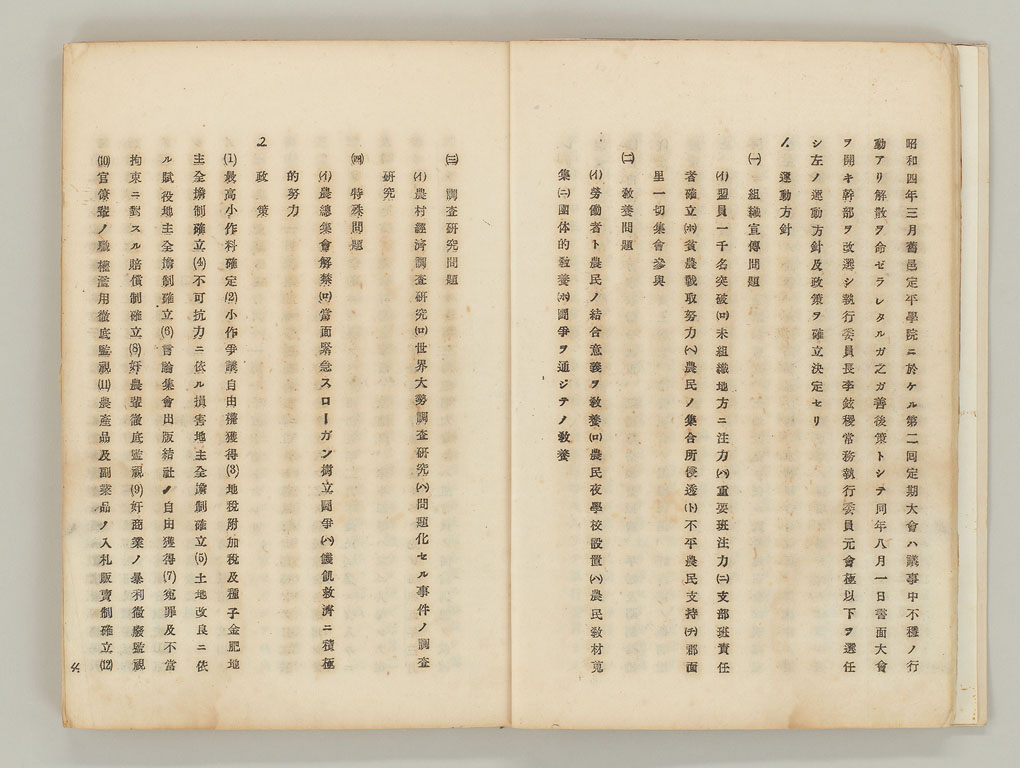 昭和四年三月舊邑定平學院ニ於ケル第二囘定期大會ハ議事中不穩ノ行
動アリ解散ヲ命ゼラレタルガ之ガ善後策トシテ同年八月一日書面大會
ヲ開キ幹部ヲ改選シ執行委員長李鉉稷常務執行委員元會極以下ヲ選任
シ左ノ運動方針及政策ヲ確立決定セリ
1. 運動方針
㈠ 組織宣傳問題
(イ)盟員一千名突破(ロ)未組織地方ニ注力(ハ)重要班注力(ニ)支部班責任
者確立(ホ)貧農戰取努力(ヘ)農民ノ集合所侵透(ト)不平農民支持(チ)郡面
里一切集會參與
㈡ 敎養問題
(イ)勞働者ト農民ノ結合意義ヲ敎養(ロ)農民夜學校設置(ハ)農民敎材蒐
集(ニ)團体的敎養(ホ)鬪爭ヲ通ジテノ敎養
㈢ 調査硏究問題
(イ)農村經濟調査硏究(ロ)世界大勢調査硏究(ハ)問題化セル事件ノ調査
硏究
㈣ 特殊問題
(イ)農總集會解禁(ロ)當面緊急スローガン樹立鬪爭(ハ)饑飢救濟ニ積極
的努力
2 政策
(1)最高小作料確定(2)小作爭議自由權獲得(3)地稅附加稅及種子金肥地
主全擔制確立(4)不可抗力ニ依ル損害地主全擔制確立(5)土地改良ニ依
ル賦役地主全擔制確立(6)言論集會出版結社ノ自由獲得(7)冤罪及不當
拘束ニ對スル賠償制確立(8)奸農輩徹底監視(9)奸商業ノ暴利徹廢監視
(10)官僚輩ノ職權濫用徹底監視(11)農產品及副業品ノ入札販賣制確立(12)